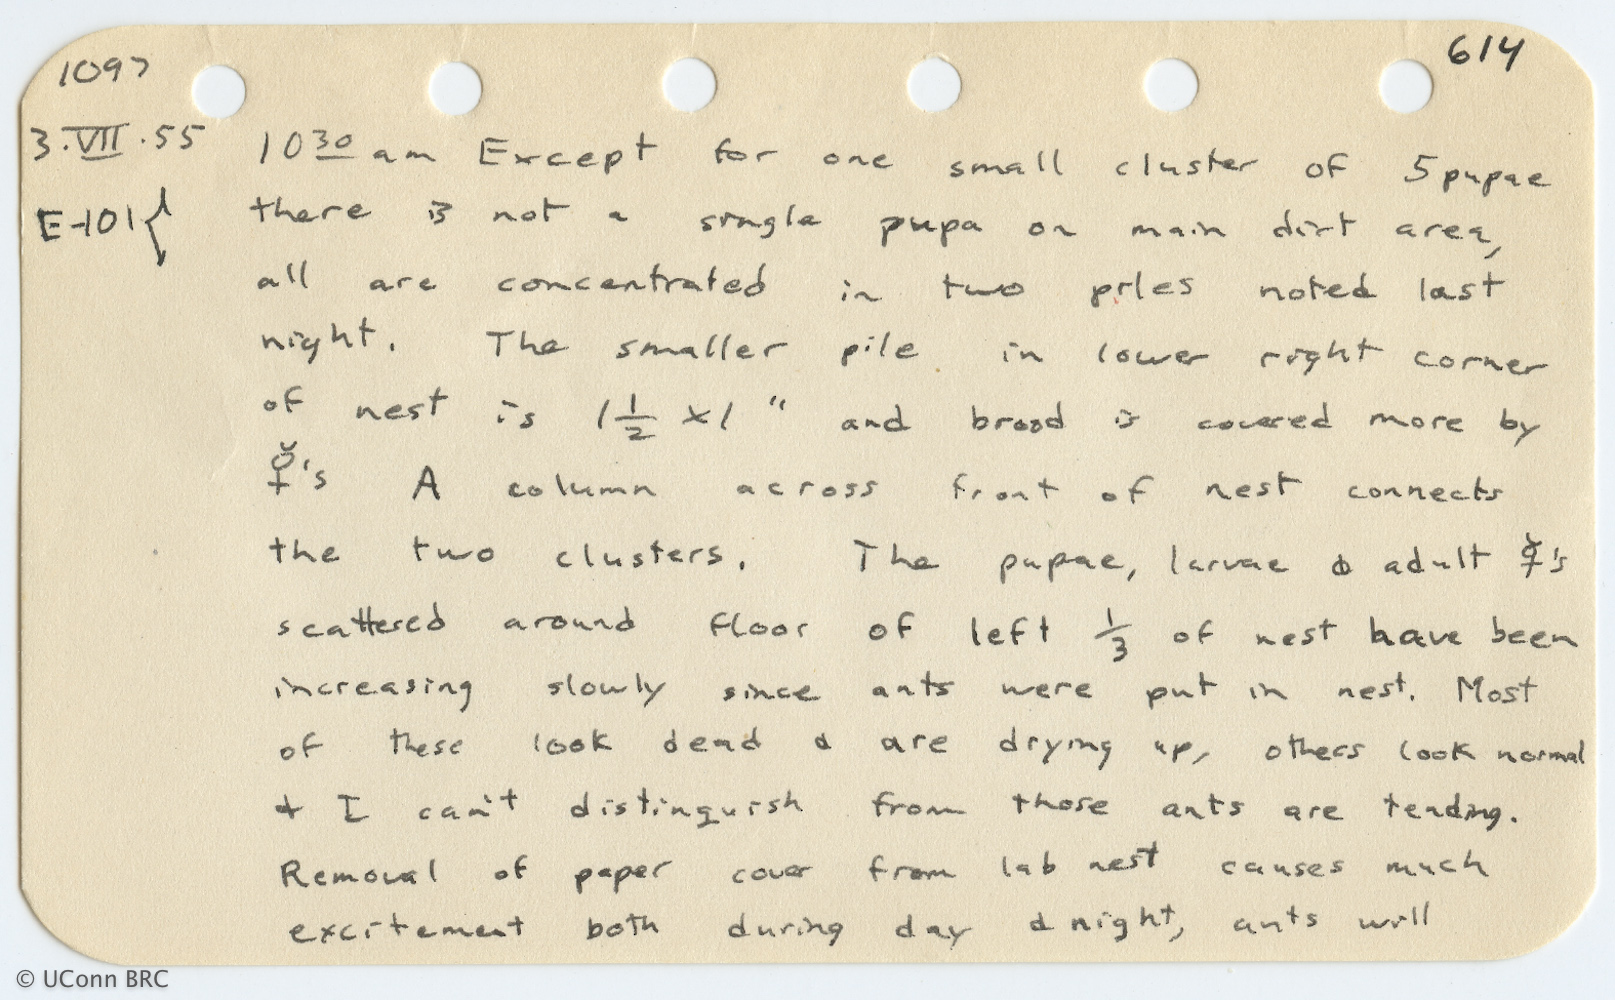 1097
614
3.VII.55
E-101{
10 30 am Except for one small cluster of 5 pupae
there is not a single pupa on main dirt area,
all are concentrated in two piles noted last
night. The smaller pile in lower right corner
of nest is 1 1/2 x 1 " and brood is covered more by
☿'s A column across front of nest connects
the two clusters. The pupae, larvae & adult ☿'s
scattered around floor of left 1/3 of nest have been
increasing slowly since ants were put in nest. Most
of these look dead & are drying up, others look normal
& I can't distinguish from those ants are tending.
Removal of paper cover from lab nest causes much
excitement both during day & night, ants will
© UConn BRC